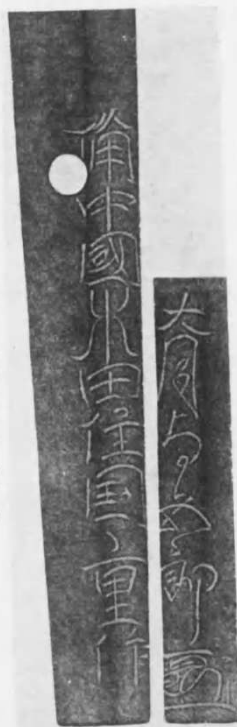 備中國水田住国重作
大月与五郎